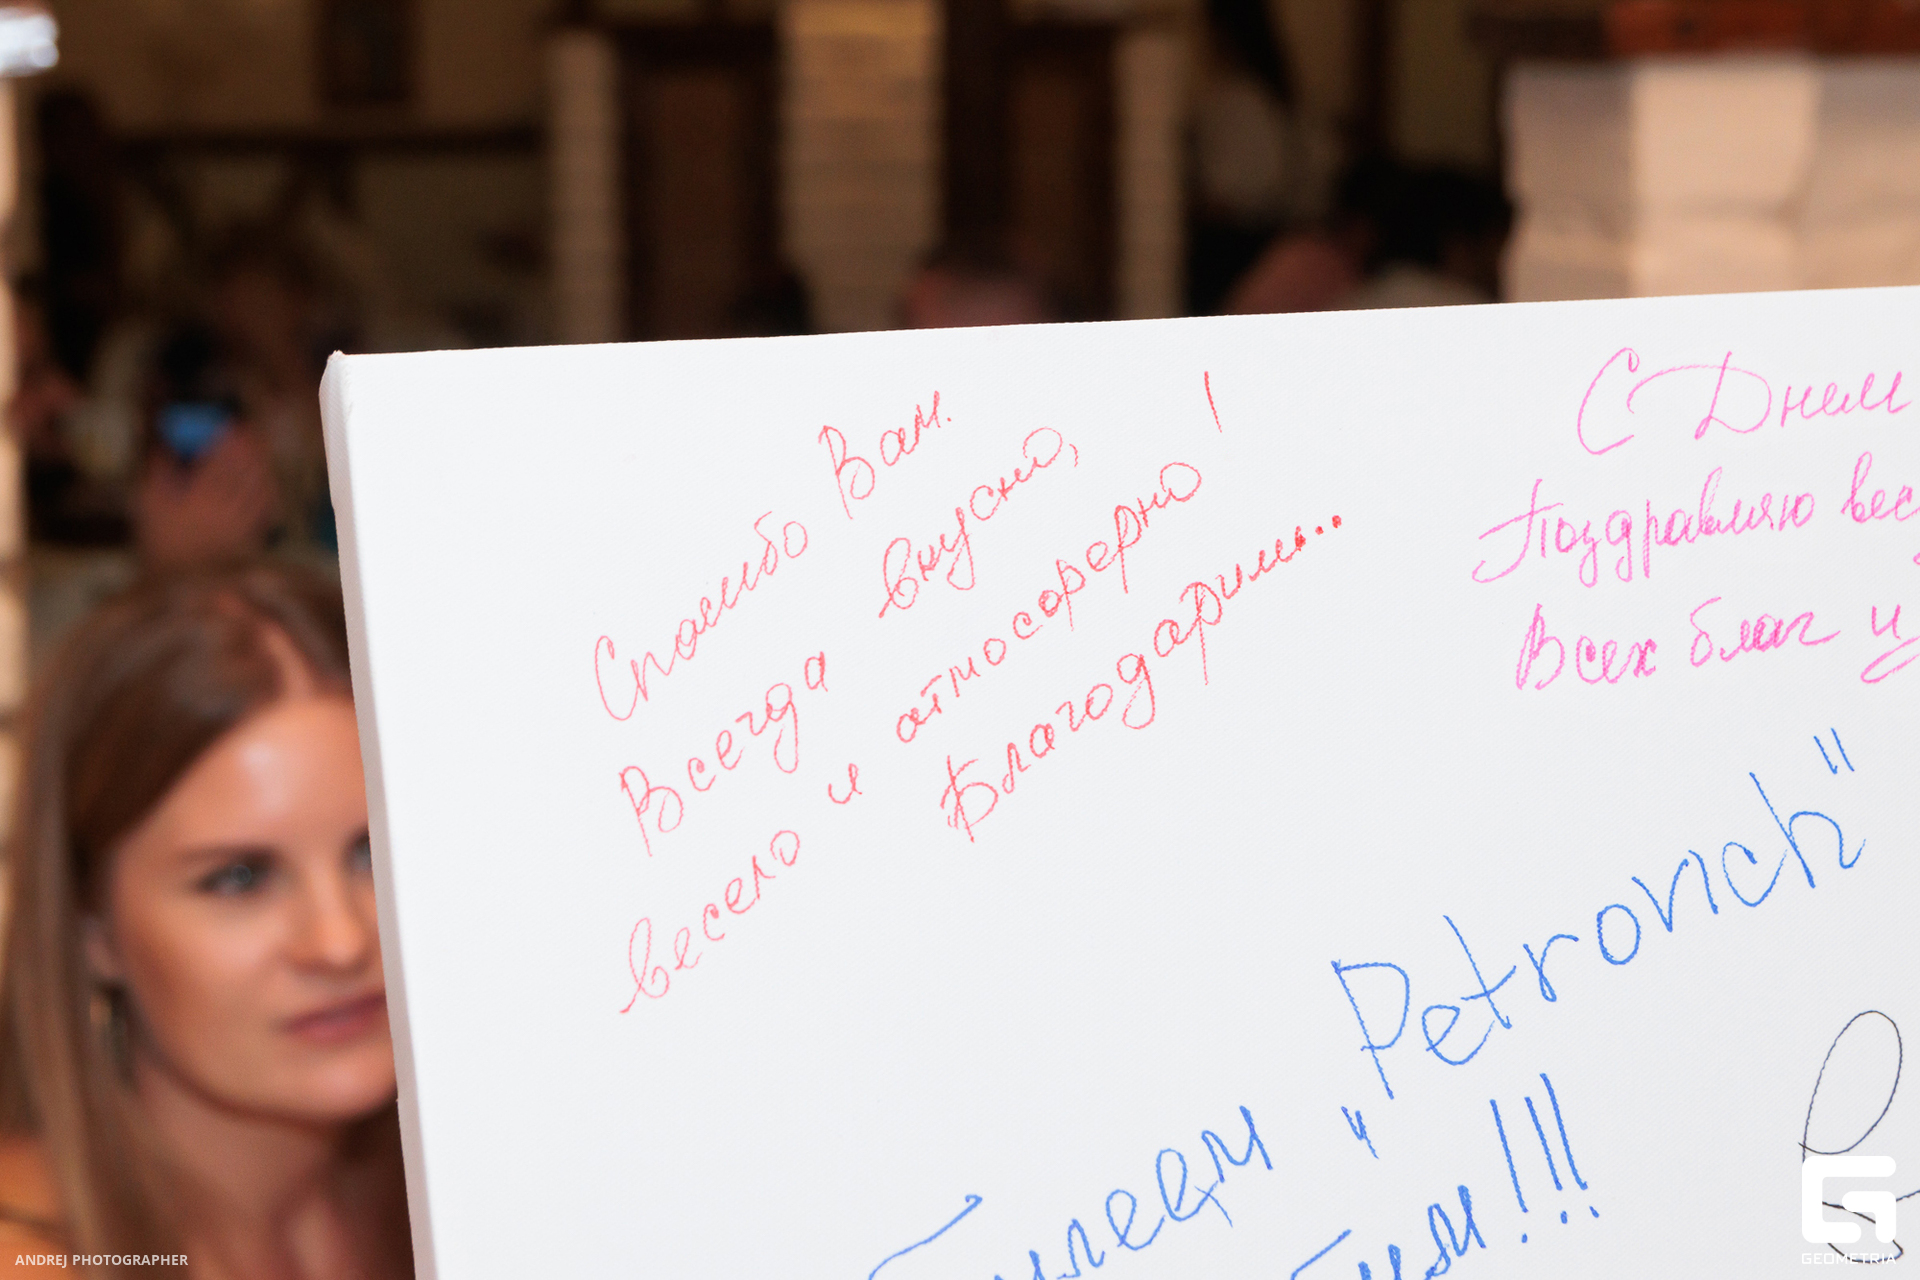 Спасибо Вам.
Всегда вкусно,
весело и атмосферно!
Благодарим...
С Днем
Поздравляю
Всех благ и
"Petrovich"
ANDREJ PHOTOGRAPHER
GEOMETRIA